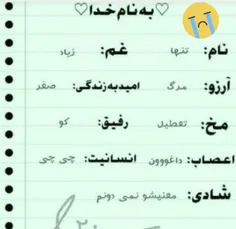 ♡به نام خدا♡
نام: تنها غم: زیاد
آرزو: مرگ امید به زندگی: صفر
مخ: تعطیل رفیق: کو
اعصاب: داغووون انسانیت: چی چی
شادی: معنیشو نمی دونم